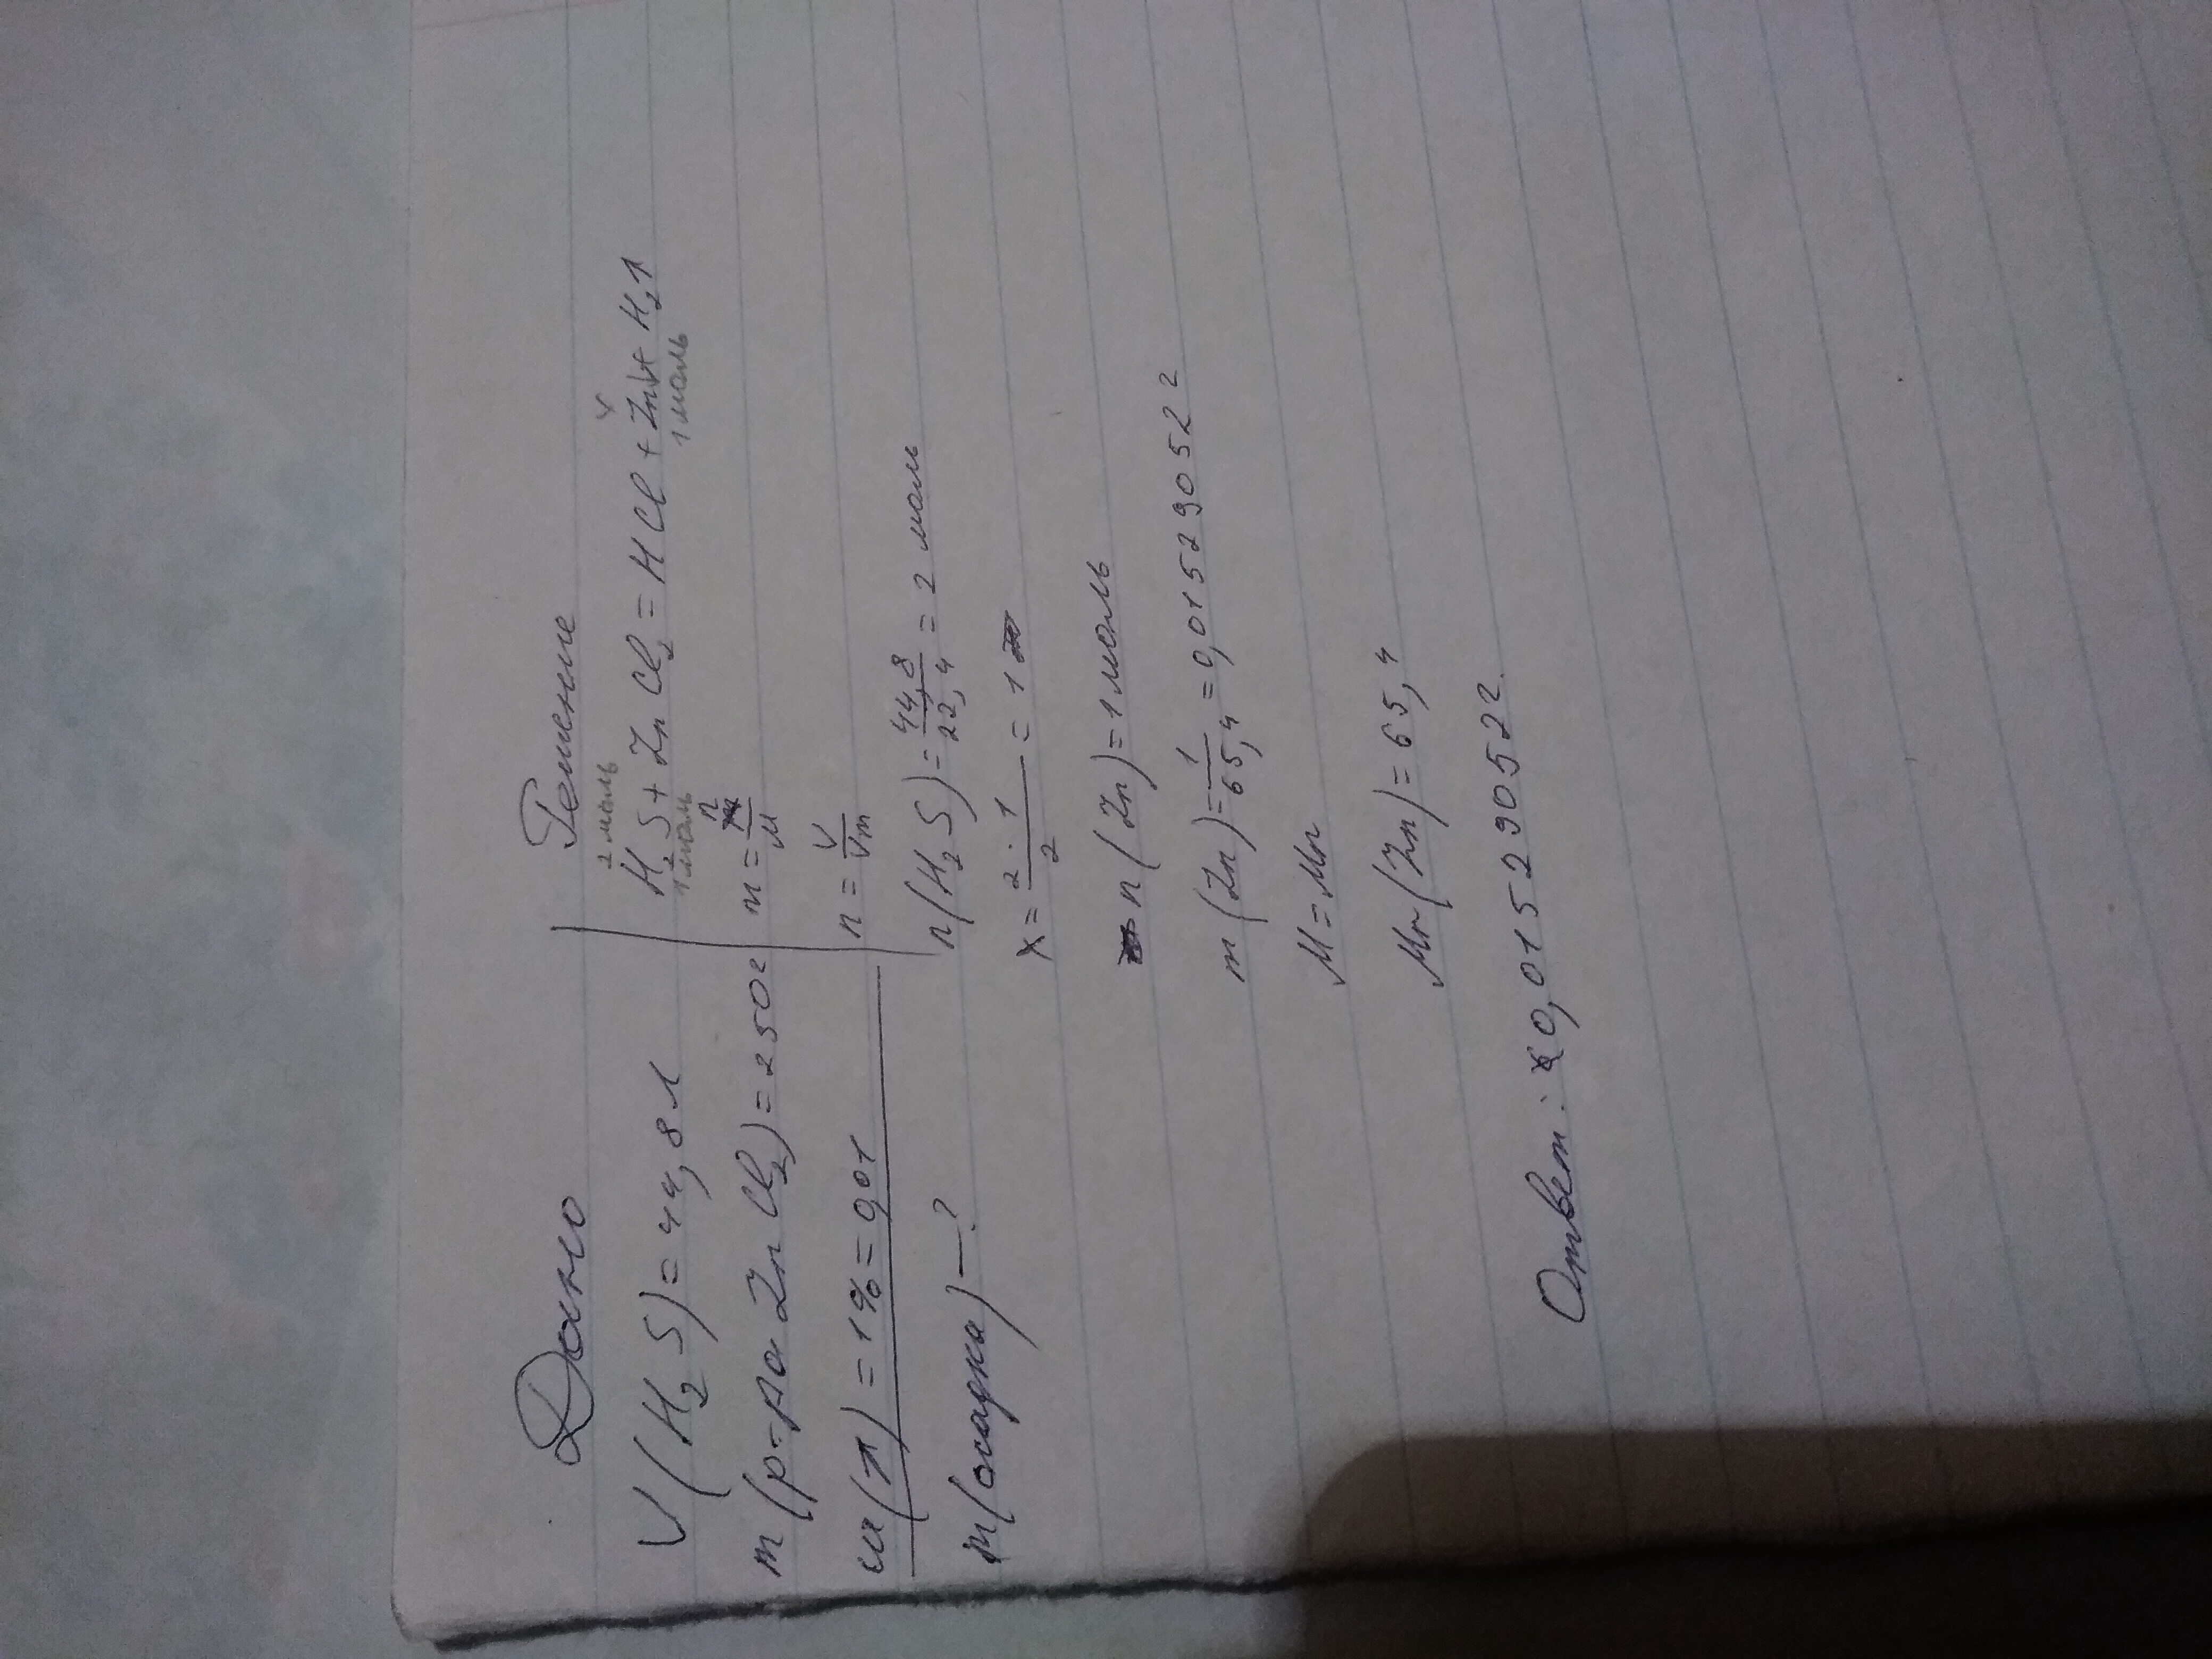 Дано
V(H2S)=44,8л
m(р-ра ZnCl2)=250г
ω(л)=1%=0,01
m(осадка)—?
Решение
2 моль x
H2S+ZnCl2=HCl+Zn↓+H2↑
1 моль 1 моль
m=n/M
n=V/Vm
n(H2S)=44,8/22,4=2 моль
x=2·1/2=1
n(Zn)=1моль
m(Zn)=1/65,4=0,01529052г
M=Mr
Mr(Zn)=65,4
Ответ: 0,01529052г.